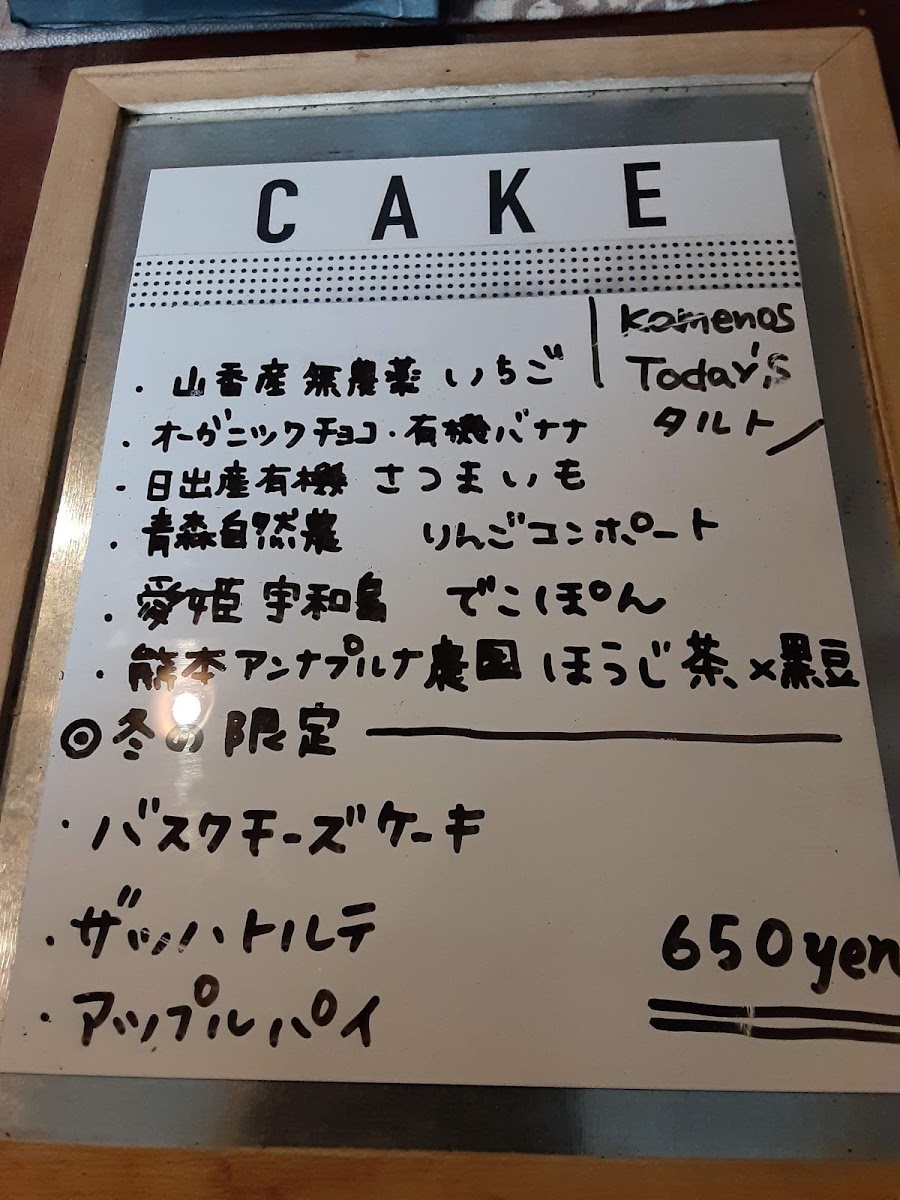 CAKE
Komenos
Today's
タルト
・山香産無農薬 いちご
・オーガニックチョコ・有機バナナ
・日出産有機 さつまいも
・青森自然農 りんごコンポート
・愛媛 宇和島 でこぽん
・熊本アンナプルナ農園 ほうじ茶×黒豆
◎冬の限定
・バスクチーズケーキ
・ザッハトルテ
・アップルパイ
650yen